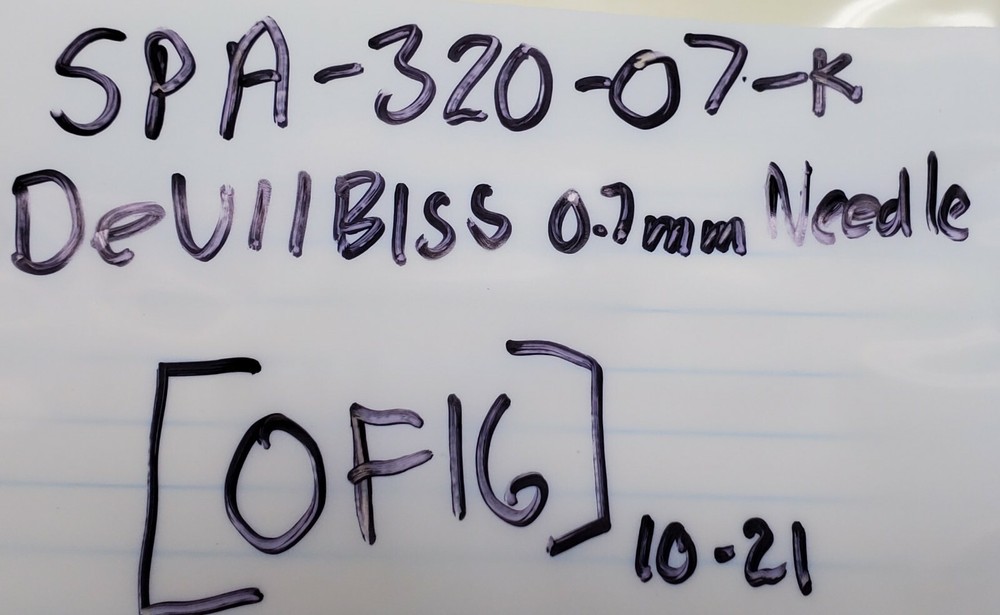 SPA-320-07-K
DeVilBiss 0.7mm Needle
[OF16] 10-21